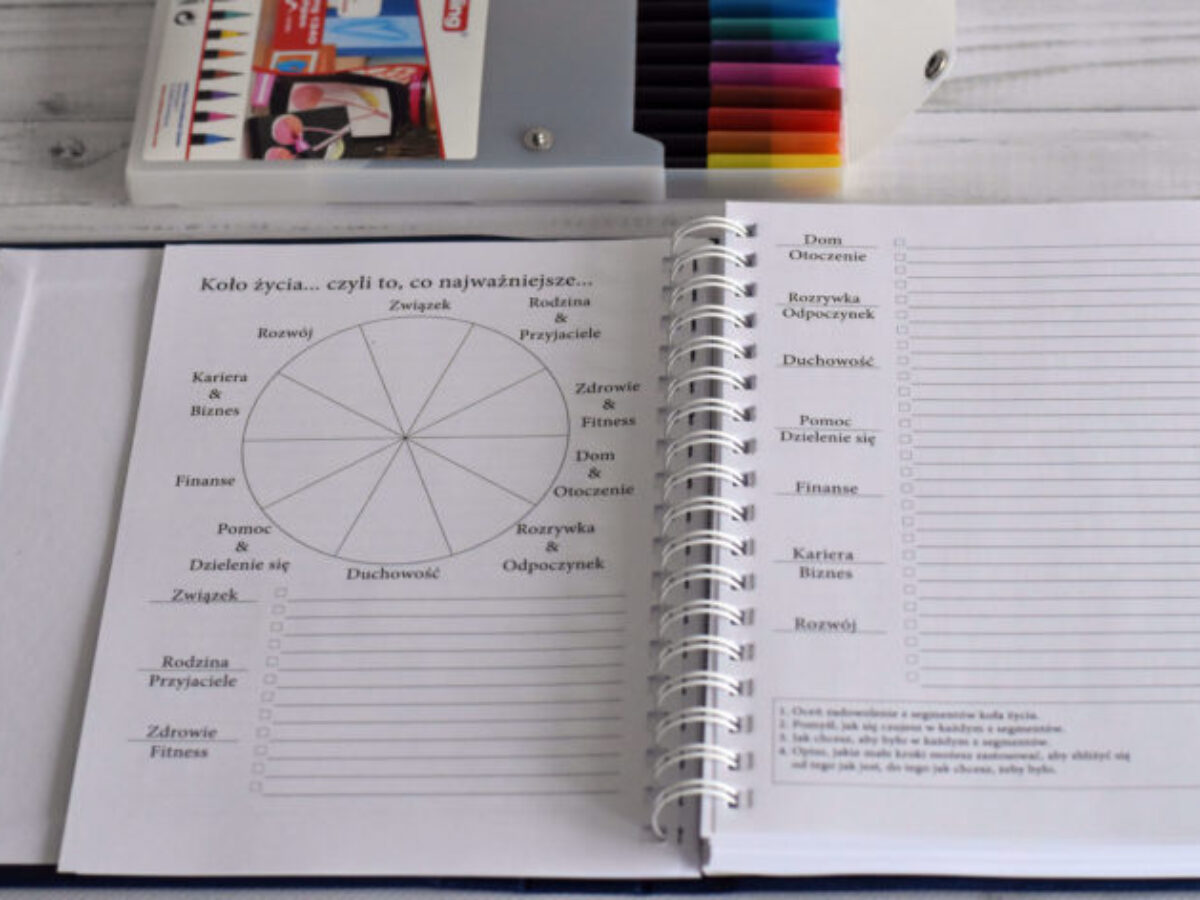 ling
Koło życia... czyli to, co najważniejsze...
Związek
Rodzina
&
Przyjaciele
Rozwój
Kariera
&
Biznes
Zdrowie
&
Fitness
Dom
&
Otoczenie
Finanse
Pomoc
&
Dzielenie się
Rozrywka
&
Odpoczynek
Duchowość
Związek
Rodzina
Przyjaciele
Zdrowie
Fitness
Dom
Otoczenie
Rozrywka
Odpoczynek
Duchowość
Pomoc
Dzielenie się
Finanse
Kariera
Biznes
Rozwój
1. Oceń zadowolenie z segmentów koła życia.
2. Pomyśl, jak się czujesz w każdym z segmentów.
3. Jak chcesz, aby było w każdym z segmentów.
4. Opisz, jakie małe kroki możesz zastosować, aby zbliżyć się
od tego jak jest, do tego jak chcesz, żeby było.